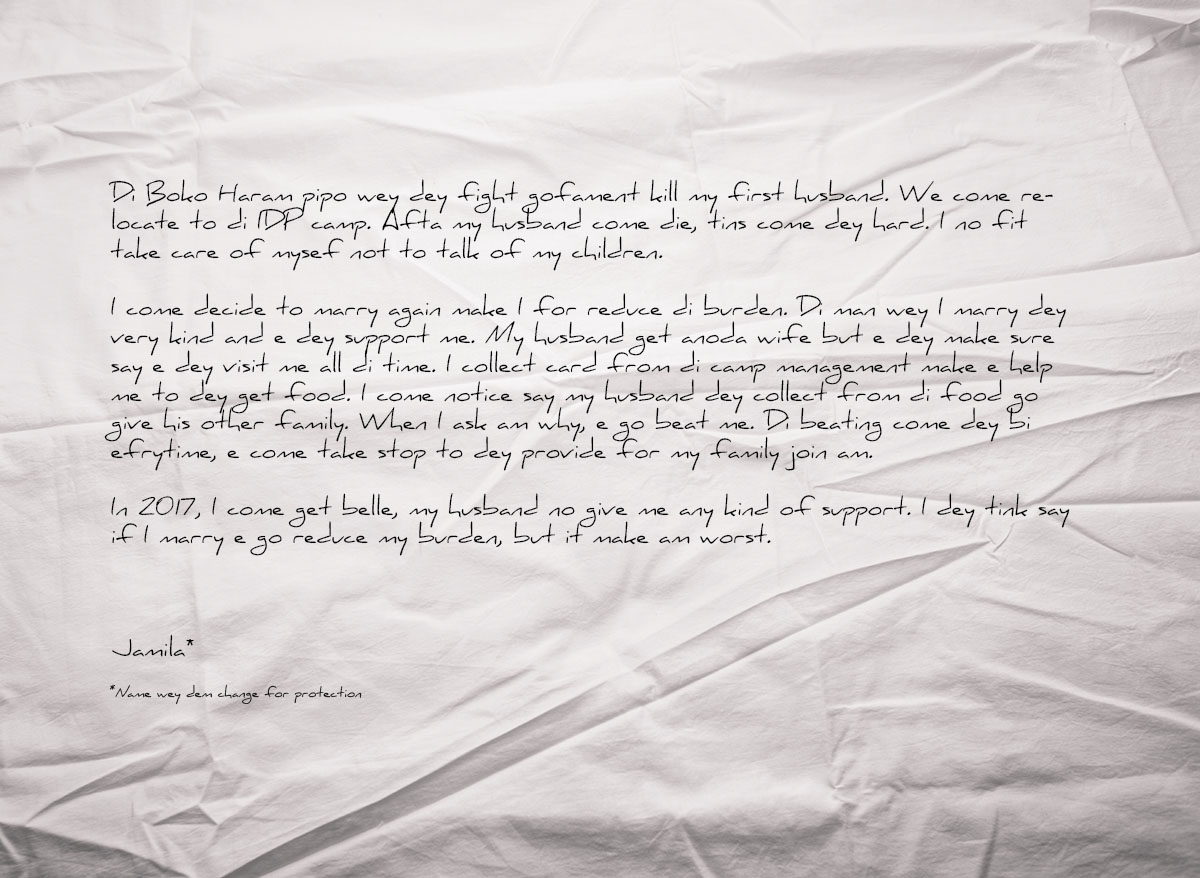 Di Boko Haram pipo wey dey fight gofament kill my first husband. We come re-
locate to di IDP camp. Afta my husband come die, tins come dey hard. I no fit
take care of mysef not to talk of my children.
I come decide to marry again make I for reduce di burden. Di man wey I marry dey
very kind and e dey support me. My husband get anoda wife but e dey make sure
say e dey visit me all di time. I collect card from di camp management make e help
me to dey get food. I come notice say my husband dey collect from di food go
give his other family. When I ask am why, e go beat me. Di beating come dey bi
efrytime, e come take stop to dey provide for my family join am.
In 2017, I come get belle, my husband no give me any kind of support. I dey tink say
if I marry e go reduce my burden, but it make am worst.
Jamila*
*Name wey dem change for protection